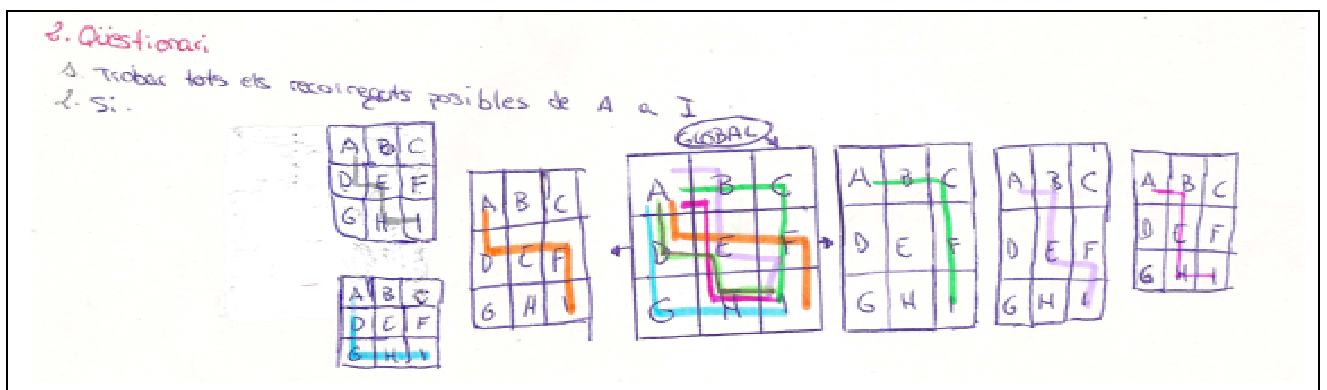 2. Qüestionari
1. Trobar tots els recorreguts posibles de A a I
2. Si.
GLOBAL
A B C
D E F
G H I
A B C
D E F
G H I
A B C
D E F
G H I
A B C
D E F
G H I
A B C
D E F
G H I
A B C
D E F
G H I
A B C
D E F
G H I